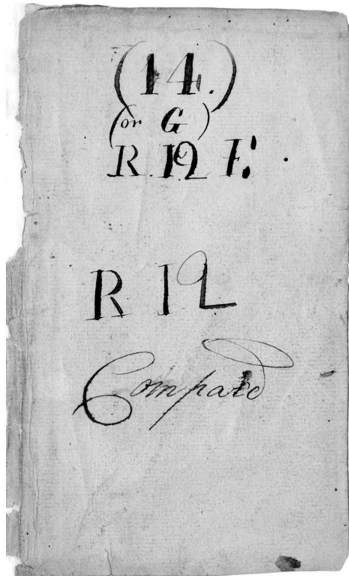 (14.)
(or G)
R 12 E.
R 12
Compared